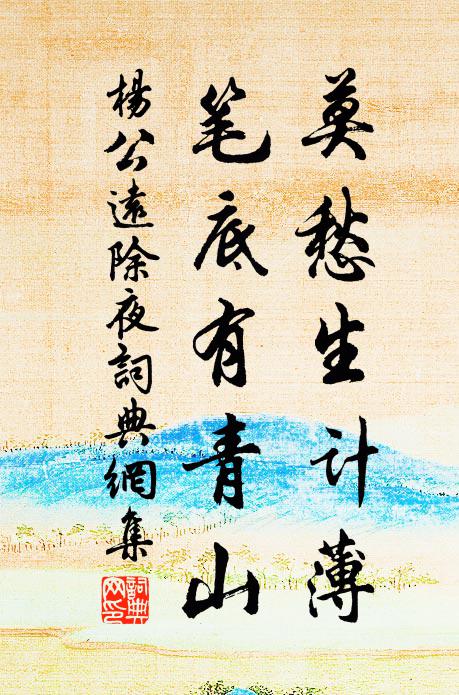 莫愁生计薄
笔底有青山
楊公遠除夜詞典網集
詞典